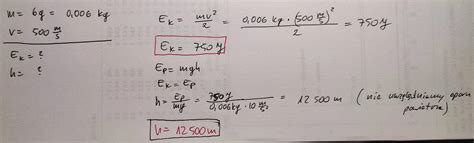 m = 6g = 0,006 kg
v = 500 m/s
Ek = ?
h = ?
Ek = mv²/2 = 0,006 kg · (500 m/s)²/2 = 750 J
Ek = 750 J
Ep = mgh
Ek = Ep
h = Ep/mg = 750 J/0,006 kg · 10 m/s² = 12 500 m (nie uwzględniamy oporu powietrza)
h = 12 500 m